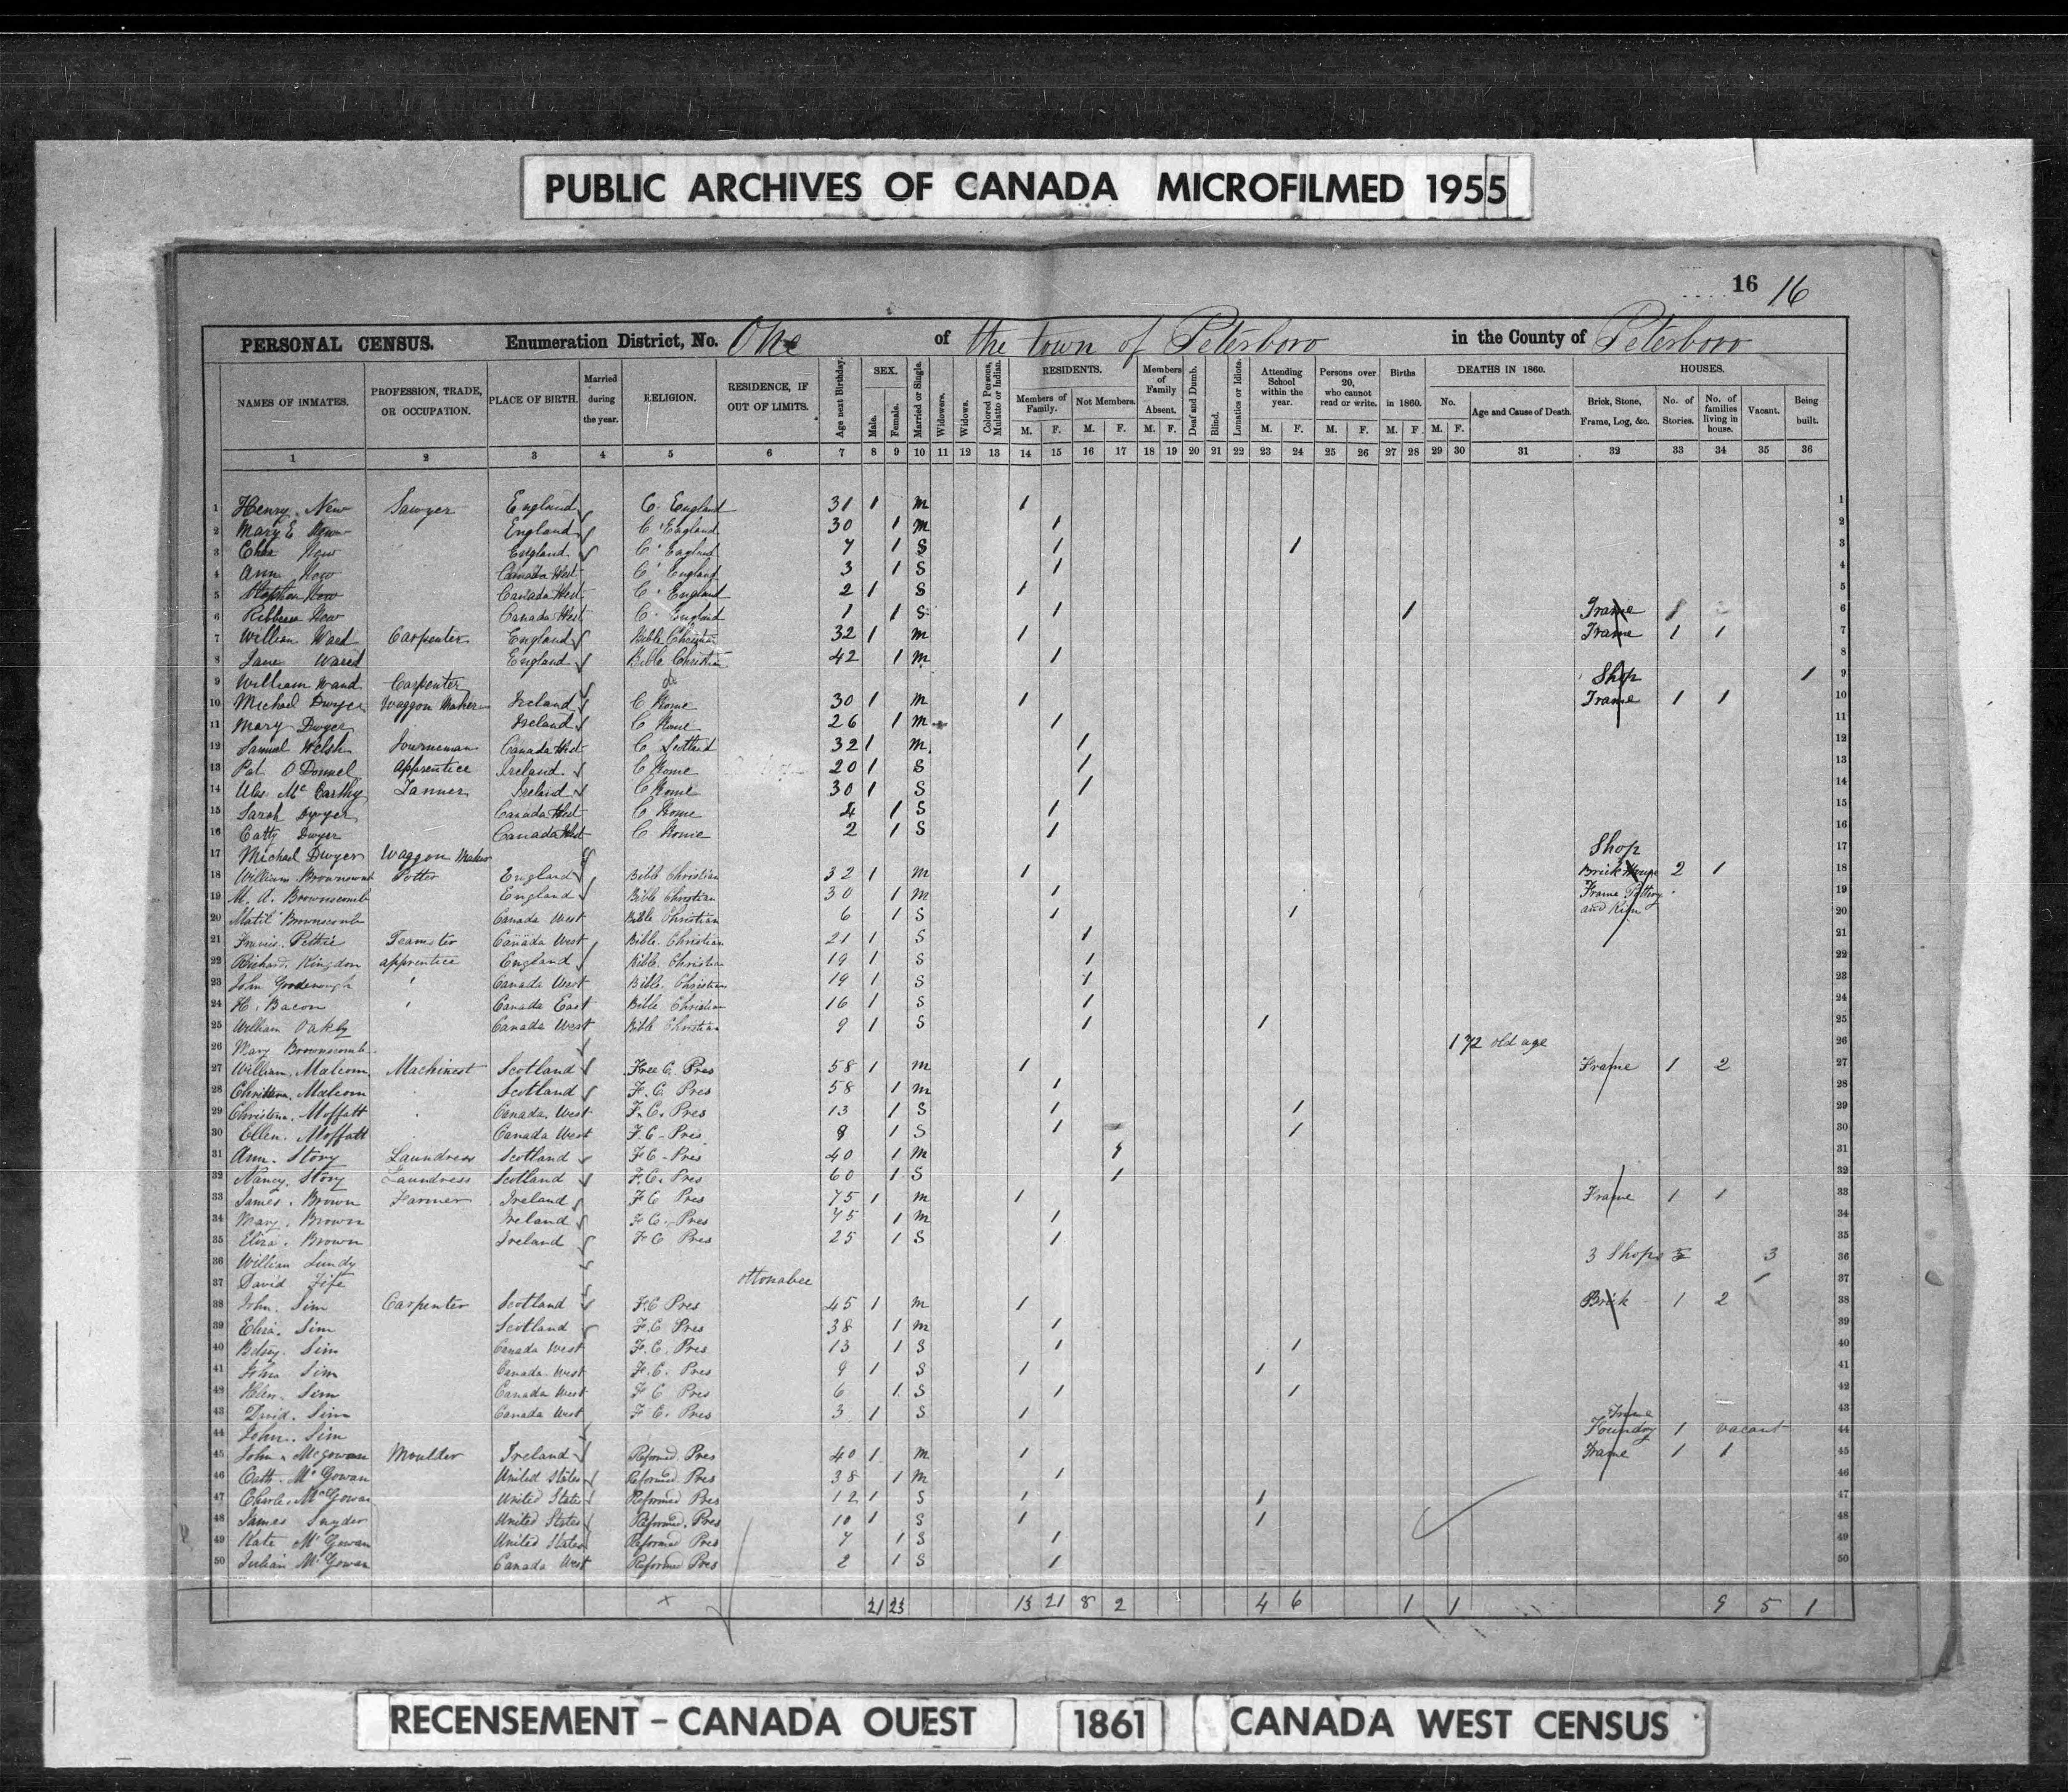 PUBLIC ARCHIVES OF CANADA MICROFILMED 1955
16 16
PERSONAL CENSUS. Enumeration District, No. One of the town of Peterboro in the County of Peterboro
NAMES OF INMATES. PROFESSION, TRADE, OR OCCUPATION. PLACE OF BIRTH. Married during the year. RELIGION. RESIDENCE, IF OUT OF LIMITS. Age next Birthday. SEX. Male. Female. Married or Single. Widowers. Widows. Colored Persons, Mulatto or Indian. RESIDENTS. Members of Family. M. F. Not Members. M. F. Members of Family Absent. M. F. Deaf and Dumb. Blind. Lunatics or Idiots. Attending School within the year. M. F. Persons over 20, who cannot read or write. M. F. Births in 1860. M. F. DEATHS IN 1860. No. M. F. Age and Cause of Death. HOUSES. Brick, Stone, Frame, Log, &c. No. of Stories. No. of families living in house. Vacant. Being built.
1 2 3 4 5 6 7 8 9 10 11 12 13 14 15 16 17 18 19 20 21 22 23 24 25 26 27 28 29 30 31 32 33 34 35 36
1 Henry New Sawyer England C. England 31 1 m 1 1
2 Mary E New England C. England 30 1 m 1 2
3 New England C. England 7 1 S 1 1 3
4 Ann New Canada West C. England 3 1 S 1 4
5 Stephen New Canada West C. England 2 1 S 1 5
6 New Canada West C. England 1 1 S 1 1 Frame 1 6
7 William Ward Carpenter England Bible Christian 32 1 m 1 Frame 1 1 7
8 Jane England Bible Christian 42 1 m 1 8
9 William Ward Carpenter do Shop 1 9
10 Michael Dwyer Waggon Maker Ireland C Rome 30 1 m 1 Frame 1 1 10
11 Mary Dwyer Ireland C Rome 26 1 m 1 11
12 Samuel Welsh Journeman Canada West C Scotland 32 1 m 1 12
13 Pat O Donnel apprentice Ireland C Rome 20 1 S 1 13
14 Mc Carthy Tanner Ireland C Rome 30 1 S 1 14
15 Sarah Dwyer Canada West C Rome 4 1 S 1 15
16 Catty Dwyer Canada West C Rome 2 1 S 1 16
17 Michael Dwyer Waggon Maker Shop 17
18 William Brownscomb Potter England Bible Christian 32 1 m 1 Brick House 2 1 18
19 M. A. Brownscomb England Bible Christian 30 1 m 1 Frame Pottery 19
20 Matil Brownscomb Canada West Bible Christian 6 1 S 1 1 and Kiln 20
21 Francis Pethie Teamster Canada West Bible Christian 21 1 S 1 21
22 Richard Kingdon apprentice England Bible Christian 19 1 S 1 22
23 John Goodenough ' Canada West Bible Christian 19 1 S 1 23
24 H. Bacon ' Canada East Bible Christian 16 1 S 1 24
25 William Oakly Canada West Bible Christian 9 1 S 1 1 25
26 Mary Brownscomb 1 72 old age 26
27 William Malcom Machinest Scotland Free C. Pres 58 1 m 1 Frame 1 2 27
28 Malcom Scotland F. C. Pres 58 1 m 1 28
29 Christena Moffatt Canada West F. C. Pres 13 1 S 1 1 29
30 Ellen Moffatt Canada West F. C. Pres 9 1 S 1 1 30
31 Ann Story Laundress Scotland F C - Pres 40 1 m 1 31
32 Nancy Story Laundress Scotland F. C. Pres 60 1 S 1 32
33 James Brown Farmer Ireland F C Pres 75 1 m 1 Frame 1 1 33
34 Mary Brown Ireland F C. Pres 75 1 m 1 34
35 Eliza Brown Ireland F C Pres 25 1 S 1 35
36 William Lundy 3 Shops 3 36
37 David Fife ottonabee 37
38 John Sim Carpenter Scotland F. C Pres 45 1 m 1 Brick 1 2 38
39 Eliza Sim Scotland F. C Pres 38 1 m 1 39
40 Betsy Sim Canada West F. C. Pres 13 1 S 1 1 40
41 John Sim Canada West F. C. Pres 9 1 S 1 1 41
42 Helen Sim Canada West F C Pres 6 1 S 1 1 42
43 David Sim Canada West F C. Pres 3 1 S 1 Frame 43
44 John Sim Foundry 1 vacant 44
45 John McGowan Moulder Ireland Reformed Pres 40 1 m 1 Frame 1 1 45
46 Cath. McGowan United States Reformed Pres 38 1 m 1 46
47 Charles McGowan United States Reformed Pres 12 1 S 1 1 47
48 James Snyder United States Reformed Pres 10 1 S 1 1 48
49 Kate McGowan United States Reformed Pres 7 1 S 1 49
50 Julian McGowan Canada West Reformed Pres 2 1 S 1 50
21 23 13 21 8 2 4 6 1 1 9 5 1
RECENSEMENT - CANADA OUEST 1861 CANADA WEST CENSUS